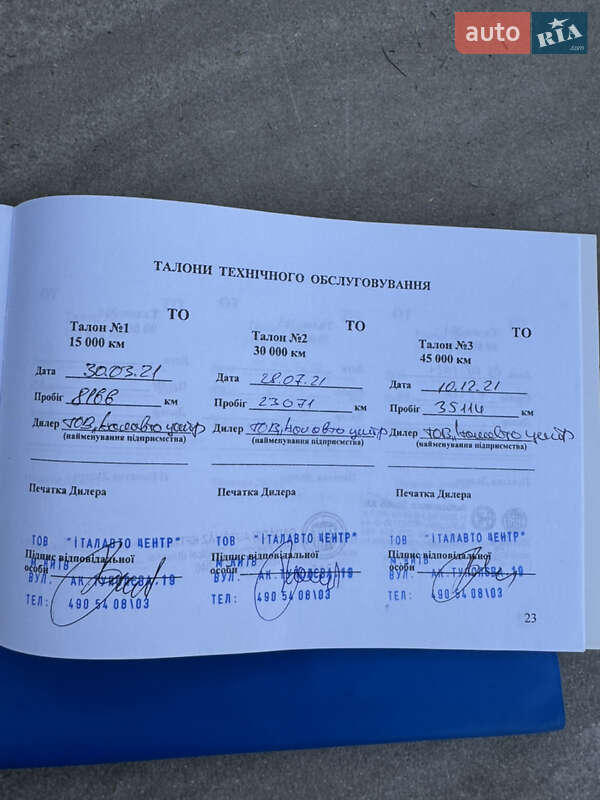 auto RIA .com
ТАЛОНИ ТЕХНІЧНОГО ОБСЛУГОВУВАННЯ
ТО
Талон №1
15 000 км
Дата 30.03.21
Пробіг 8166 км
Дилер ТОВ "Італавто центр
(найменування підприємства)
Печатка Дилера
ТОВ "ІТАЛАВТО ЦЕНТР"
Підпис відповідальної
особи
М.КИЇВ
ВУЛ. АК.ТУПОЛЄВА,19
ТЕЛ: 490 54 08\03
ТО
Талон №2
30 000 км
Дата 28.07.21
Пробіг 23071 км
Дилер ТОВ "Італавто центр
(найменування підприємства)
Печатка Дилера
ТОВ "ІТАЛАВТО ЦЕНТР"
Підпис відповідальної
особи
М.КИЇВ
ВУЛ. АК.ТУПОЛЄВА,19
ТЕЛ: 490 54 08\03
ТО
Талон №3
45 000 км
Дата 10.12.21
Пробіг 35114 км
Дилер ТОВ "Італавто центр
(найменування підприємства)
Печатка Дилера
ТОВ "ІТАЛАВТО ЦЕНТР"
Підпис відповідальної
особи
М.КИЇВ
ВУЛ. АК.ТУПОЛЄВА,19
ТЕЛ: 490 54 08\03
23